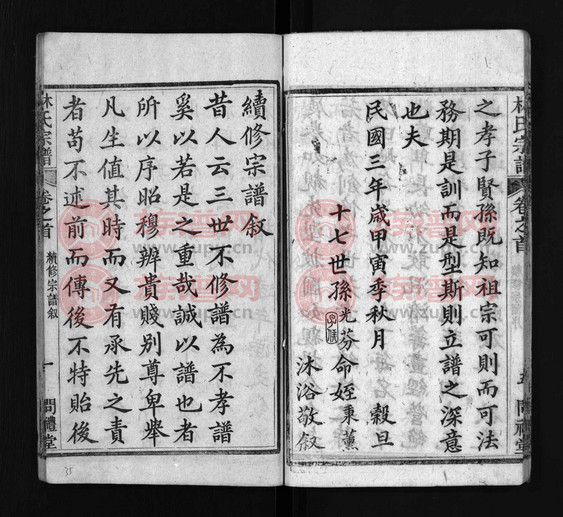 林氏宗譜
卷之首
之孝子賢孫既知祖宗可則而可法
務期是訓而是型斯則立譜之深意
也夫
民國三年歲甲寅季秋月 穀旦
十七世孫光芬命姪秉薰
沐浴敬敘
續修宗譜敘
昔人云三世不修譜為不孝譜
奚以若是之重哉誠以譜也者
所以序昭穆辨貴賤別尊卑舉
凡生值其時而又有承先之責
者苟不述前而傳後不特貽後
林氏宗譜
卷之首
續修宗譜敘
問禮堂
35